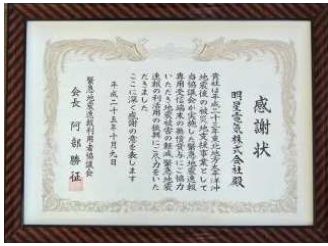 感謝状
明星電気株式会社殿
貴社は平成二十三年東北地方太平洋沖
地震後の被災地支援事業として
当協議会が実施した緊急地震速報
専用受信端末の無償貸与にご協力
いただき地震被害の軽減と緊急地震
速報の利活用の振興にご尽力をいた
だきました
ここに深く感謝の意を表します
平成二十五年十月九日
緊急地震速報利用者協議会
会長 阿部勝征